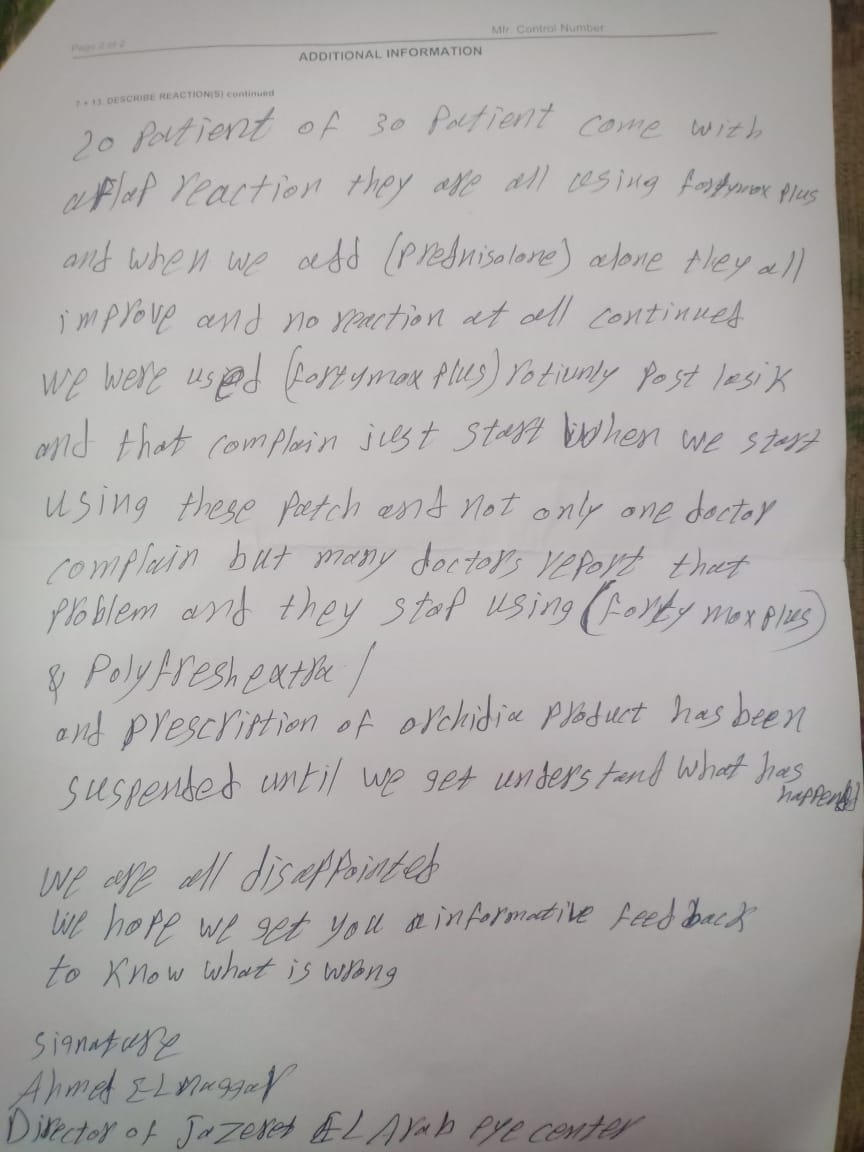 Mfr. Control Number
Page 2 of 2
ADDITIONAL INFORMATION
7 + 13. DESCRIBE REACTION(S) continued
20 Patient of 30 Patient come with
a flap reaction they are all using fortymox plus
and when we add (prednisolone) alone they all
improve and no reaction at all continued
we were used (fortymox plus) rotiunly Post lasik
and that complain just start when we start
using these patch and not only one doctor
complain but many doctors report that
problem and they stop using (forty mox plus)
& Polyfresh extra /
and prescription of orchidia product has been
suspended until we get understand what has
happened
we are all disappointed
we hope we get you a informative feed back
to know what is wrong
signature
Ahmed EL Naggar
Director of Jazeret EL Arab eye center